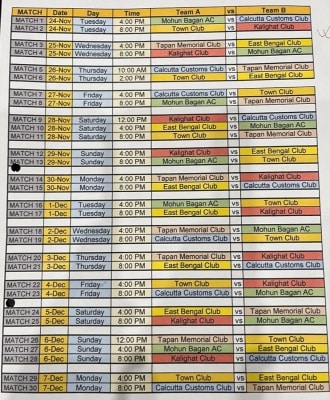 MATCH Date Day Time Team A Team B
MATCH 1 24-Nov Tuesday 4:00 PM Mohun Bagan AC vs Calcutta Customs Club
MATCH 2 24-Nov Tuesday 8:00 PM Town Club vs Kalighat Club
MATCH 3 25-Nov Wednesday 4:00 PM Tapan Memorial Club vs East Bengal Club
MATCH 4 25-Nov Wednesday 8:00 PM Kalighat Club vs Mohun Bagan AC
MATCH 5 26-Nov Thursday 10:00 AM Calcutta Customs Club vs Tapan Memorial Club
MATCH 6 26-Nov Thursday 2:00 PM Town Club vs East Bengal Club
MATCH 7 27-Nov Friday 4:00 PM Calcutta Customs Club vs Town Club
MATCH 8 27-Nov Friday 8:00 PM Mohun Bagan AC vs Tapan Memorial Club
MATCH 9 28-Nov Saturday 12:00 PM Kalighat Club vs Calcutta Customs Club
MATCH 10 28-Nov Saturday 4:00 PM East Bengal Club vs Mohun Bagan AC
MATCH 11 28-Nov Saturday 8:00 PM Town Club vs Tapan Memorial Club
MATCH 12 29-Nov Sunday 4:00 PM Kalighat Club vs East Bengal Club
MATCH 13 29-Nov Sunday 8:00 PM Mohun Bagan AC vs Town Club
MATCH 14 30-Nov Monday 4:00 PM Tapan Memorial Club vs Kalighat Club
MATCH 15 30-Nov Monday 8:00 PM East Bengal Club vs Calcutta Customs Club
MATCH 16 1-Dec Tuesday 4:00 PM Mohun Bagan AC vs Town Club
MATCH 17 1-Dec Tuesday 8:00 PM East Bengal Club vs Kalighat Club
MATCH 18 2-Dec Wednesday 4:00 PM Tapan Memorial Club vs Mohun Bagan AC
MATCH 19 2-Dec Wednesday 8:00 PM Calcutta Customs Club vs Town Club
MATCH 20 3-Dec Thursday 4:00 PM Tapan Memorial Club vs Kalighat Club
MATCH 21 3-Dec Thursday 8:00 PM East Bengal Club vs Calcutta Customs Club
MATCH 22 4-Dec Friday 4:00 PM Town Club vs Kalighat Club
MATCH 23 4-Dec Friday 8:00 PM Calcutta Customs Club vs Mohun Bagan AC
MATCH 24 5-Dec Saturday 4:00 PM East Bengal Club vs Tapan Memorial Club
MATCH 25 5-Dec Saturday 8:00 PM Kalighat Club vs Mohun Bagan AC
MATCH 26 6-Dec Sunday 12:00 PM Tapan Memorial Club vs Town Club
MATCH 27 6-Dec Sunday 4:00 PM Mohun Bagan AC vs East Bengal Club
MATCH 28 6-Dec Sunday 8:00 PM Kalighat Club vs Calcutta Customs Club
MATCH 29 7-Dec Monday 4:00 PM Town Club vs East Bengal Club
MATCH 30 7-Dec Monday 8:00 PM Calcutta Customs Club vs Tapan Memorial Club